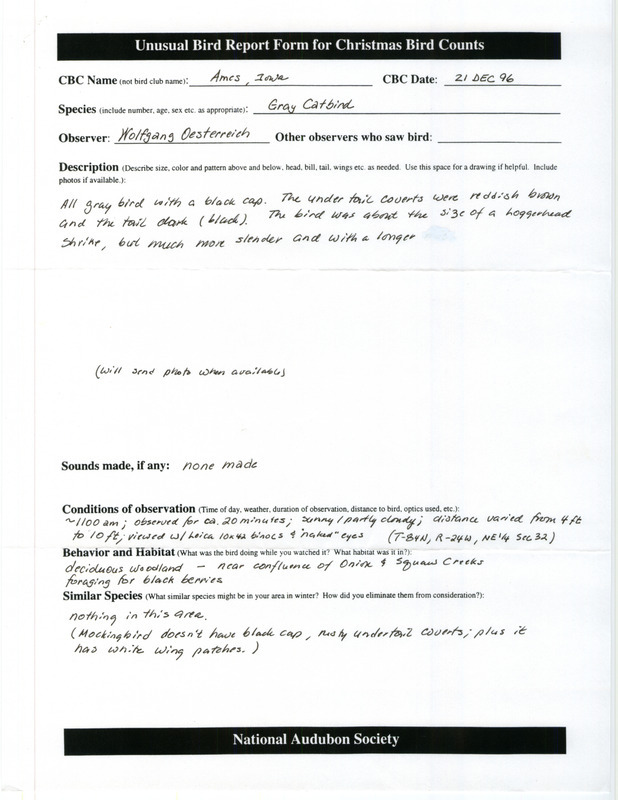 Unusual Bird Report Form for Christmas Bird Counts
CBC Name (not bird club name): Ames, Iowa CBC Date: 21 DEC 96
Species (include number, age, sex etc. as appropriate): Gray Catbird
Observer: Wolfgang Oesterreich Other observers who saw bird:
Description (Describe size, color and pattern above and below, head, bill, tail, wings etc. as needed. Use this space for a drawing if helpful. Include
photos if available.):
All gray bird with a black cap. The under tail coverts were reddish brown
and the tail dark (black). The bird was about the size of a loggerhead
Shrike, but much more slender and with a longer
(Will send photo when available)
Sounds made, if any: none made
Conditions of observation (Time of day, weather, duration of observation, distance to bird, optics used, etc.):
~1100 am; observed for ca. 20 minutes; sunny/partly cloudy; distance varied from 4 ft
to 10 ft; viewed w/ Leica 10x42 binocs & "naked" eyes (T-84N, R-24W, NE¼ Sec 32)
Behavior and Habitat (What was the bird doing while you watched it? What habitat was it in?):
deciduous woodland - near confluence of Onion & Squaw Creeks
foraging for black berries
Similar Species (What similar species might be in your area in winter? How did you eliminate them from consideration?):
nothing in this area.
(Mockingbird doesn't have black cap, rusty undertail coverts; plus it
has white wing patches.)
National Audubon Society